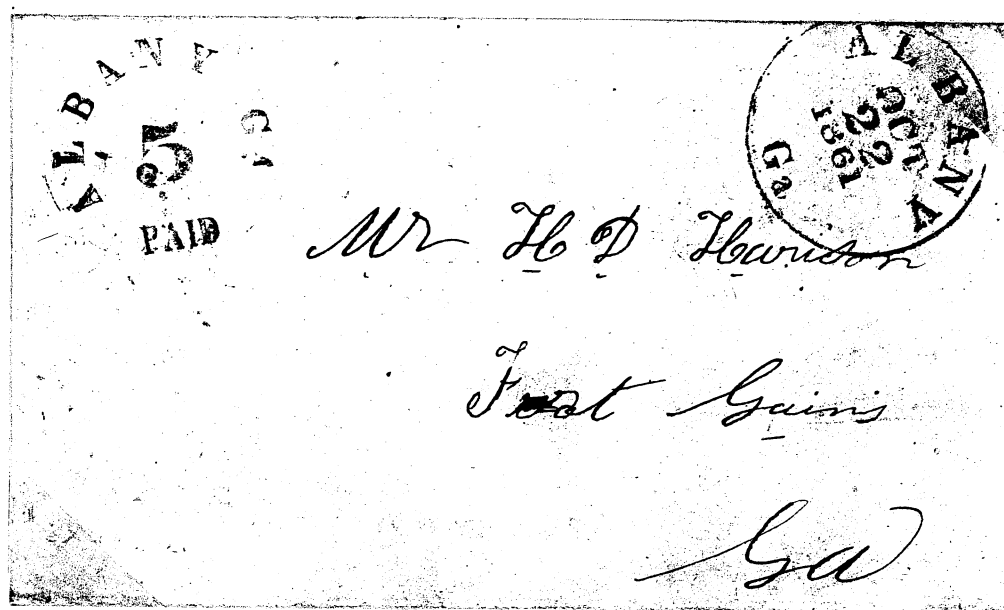 ALBANY Ga
5
PAID
ALBANY Ga
OCT
22
1861
Mr H D Harrison
Fort Gains
Ga